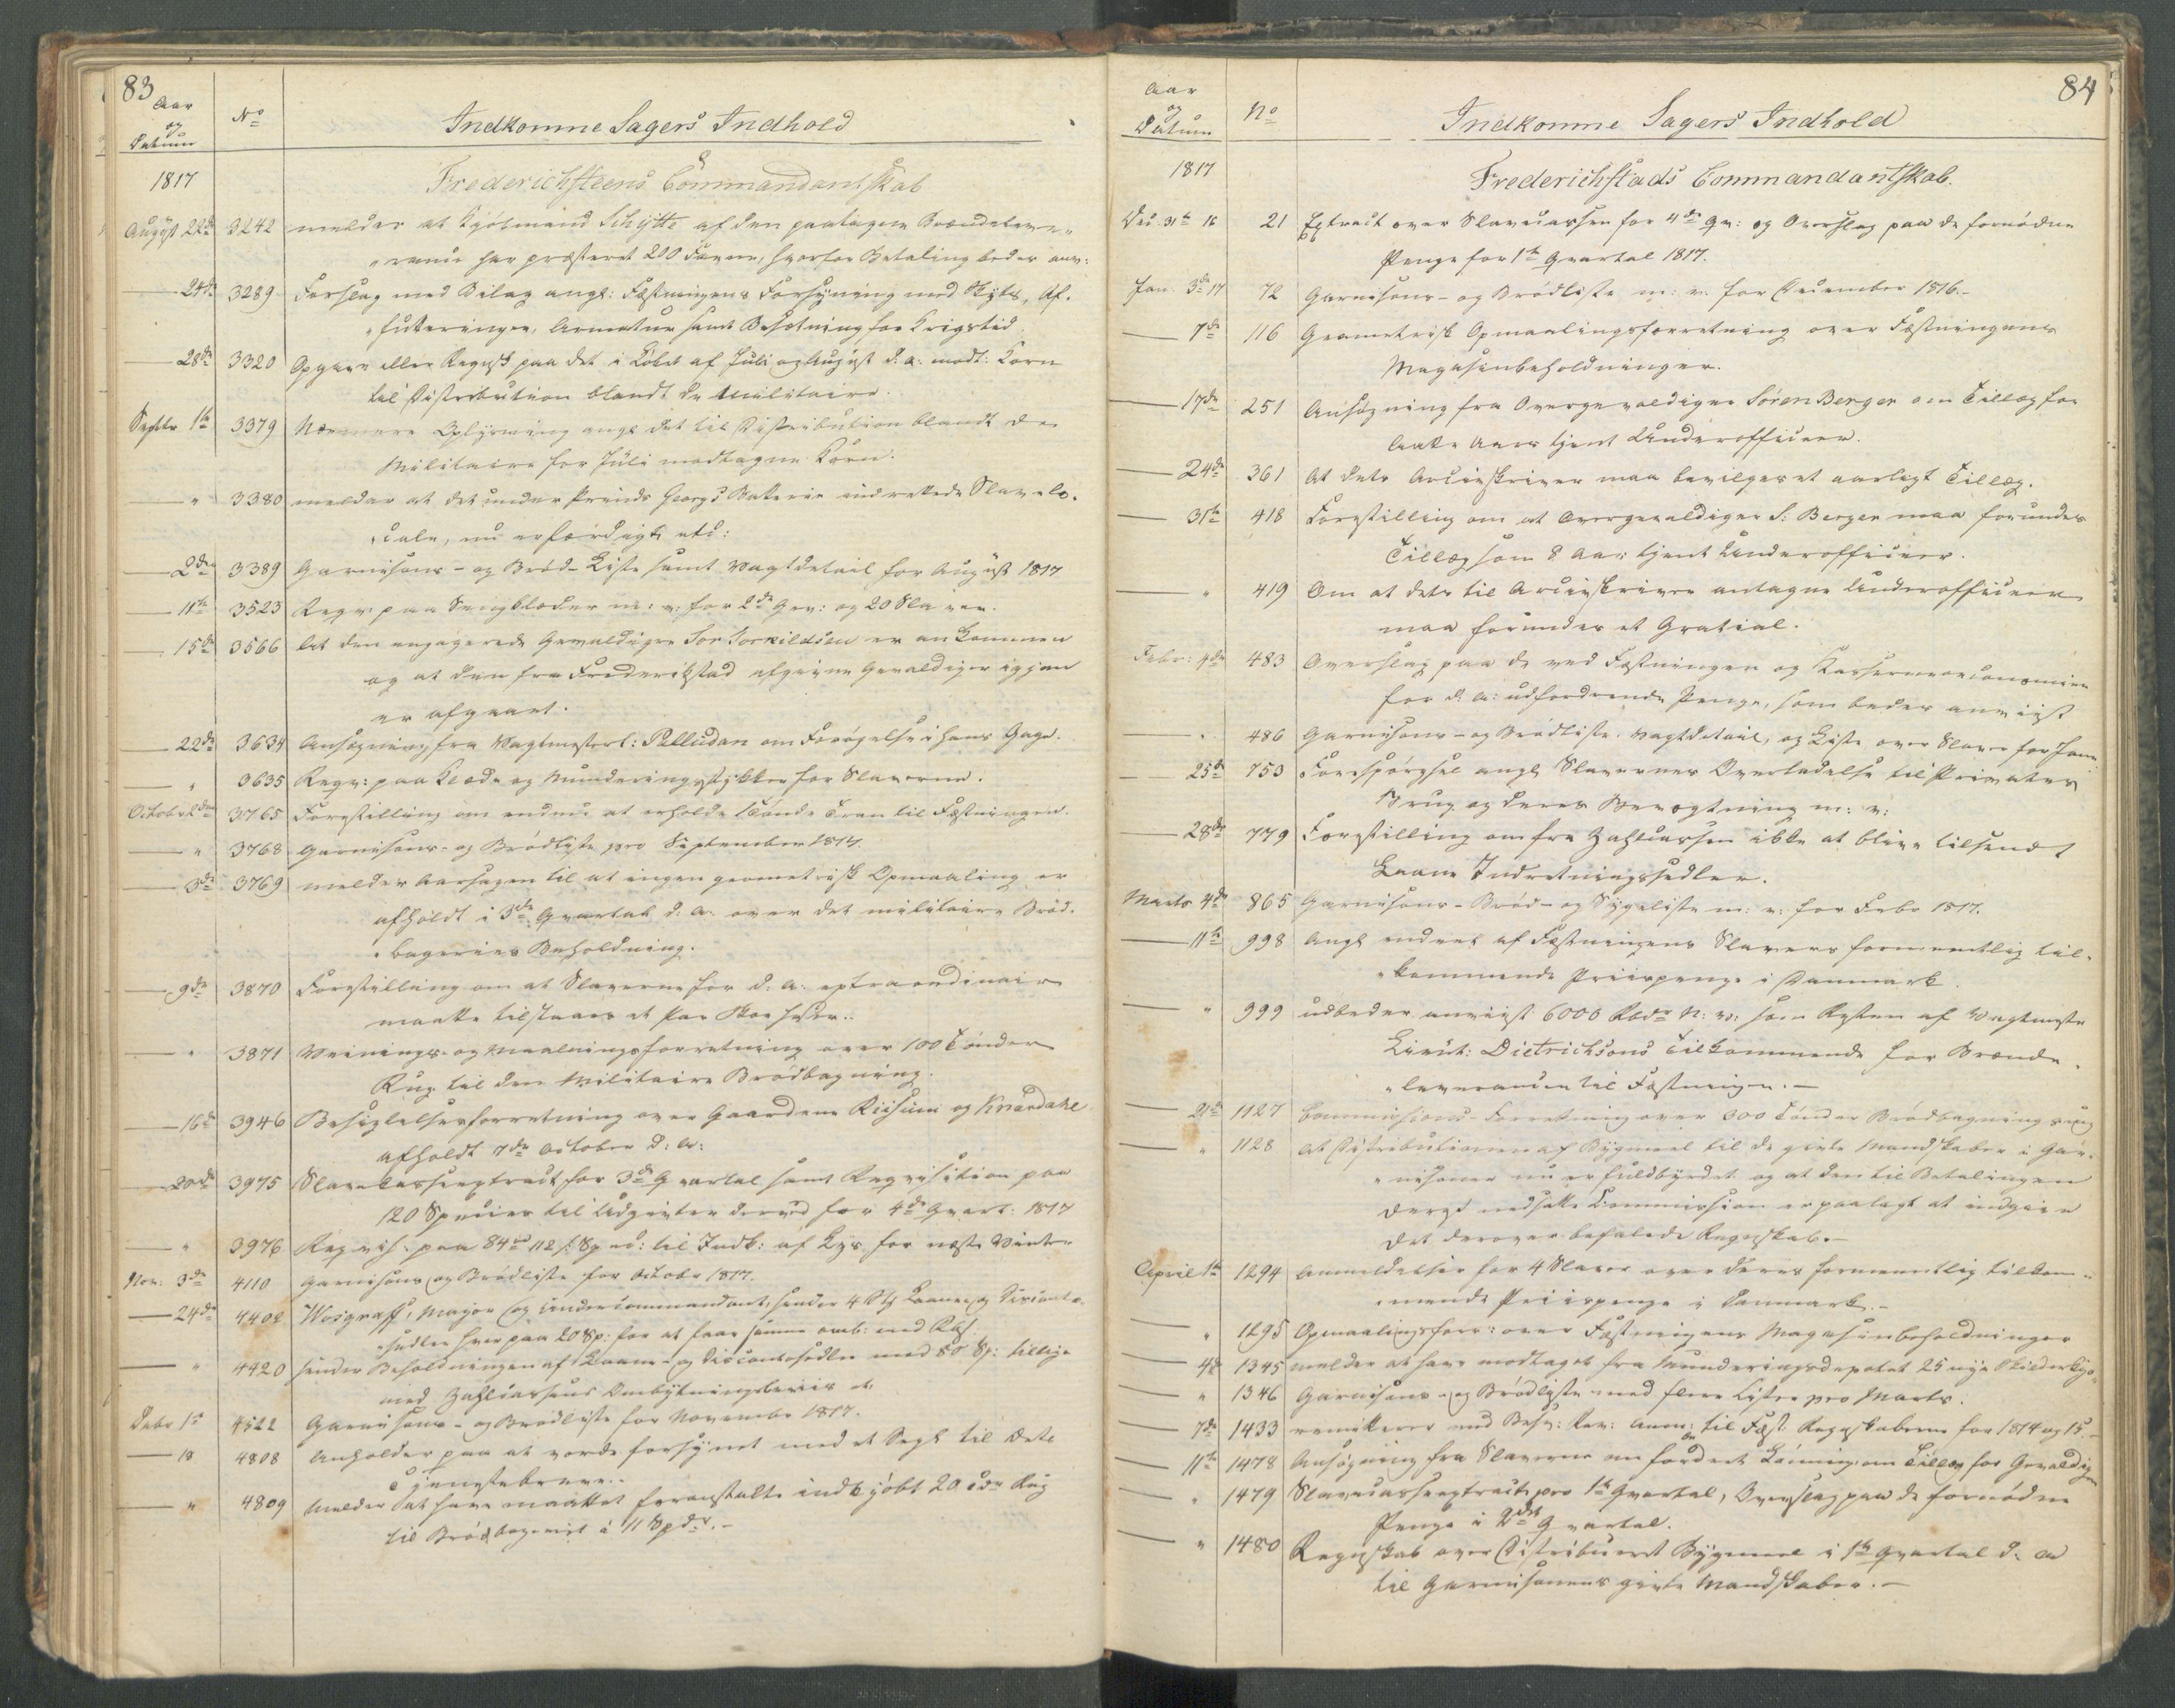 83
Aar
og
Datum
No
Indkomne Sagers Indhold
1817
Frederichsteens Commandantskab
August 22de 3242 melder at Kjøbmand Schytte af den paatagne Brændeleve-
rance har præsteret 200 Favne, hvorfor Betaling bedes anv:
24de 3289 Forslag med Bilag angl: Fæstningens Forsyning med Skyts, Af-
futeringer, Armatur samt Besætning for Krigstid
28de 3320 Opgave eller Regnsk paa det i Løbet af Juli og August d: a: modt: Korn
til Distribution blandt de Militaire.
Septbr 1te 3379 Nærmere Oplysning angl det til Distribution blandt de
Militaire for Juli modtagne Korn.
" 3380 melder at det under Prinds Georgs Batterie indrettede Slavelo-
cale, nu er færdigt etc:
2den 3389 Garnisons- og Brød-Liste samt Vagtdetail for August 1817
11te 3523 Reqv: paa Sengklæder m: v: for 2de Gev: og 20 Slaver.
15de 3566 At den engagerede Gevaldiger Tor Torkildsen er ankommen
og at den fra Frederikstad afgivne Gevaldiger igjen
er afgaaet.
22de 3634 Ansøgning fra Vagtmesterl: Palludan om Forøgelse i hans Gage.
" 3635 Reqv: paa Klæde og Munderingsstykker for Slaverne.
October 2den 3765 Forestilling om endnu at erholde 1 Tønde Tran til Fæstningen.
" 3768 Garnisons- og Brødliste pro September 1817.
3de 3769 melder Aarsagen til at ingen geometrisk Opmaaling er
afholdt i 3de Qvartal d: a: over det militaire Brød-
bageries Beholdning.
9de 3870 Forestilling om at Slaverne for d: a: extraordinair
maatte tilstaaes et Par Skoe hver..
" 3871 Veinings- og Maalningsforretning over 100 Tønder
Rug til den Militaire Brødbagning.
16de 3946 Besigtelsesforretning over Gaardene Riisum og Knardahl
afholdt 7de October d: a:
20de 3975 Slavecasseextract for 3de Qvartal samt Reqvisition paa
120 Species til Udgivter derved for 4de Qvart: 1817
" 3976 Reqvis: paa 84 112 s: Sp : til Indk: af Lys for næste Vinter
Nov: 3de 4110 Garnisons og Brødliste for Octobr 1817.
24de 4402 Wosgraff, Major og Undercommandant, sender 4 Stk Laane og Disconto-
sedler hver paa 20 Sp: for at faae samme omb: med
" 4420 sender Beholdningen af Laane- og Discontosedler med 80 Sp: tillige
med Zahlcassens Ombytningsbeviis
Debr 1te 4522 Garnisons- og Brødliste for Novembr 1817.
18 4808 Anholder paa at vorde forsynet med et Segl til dets
Tjenestebreve..
" 4809 melder at have maattet foranstalte indkjøbt 20 Tdr Rug
til Brødbageriet à 11 Spdr.-
84
Aar
og
Datum
No
Indkomne Sagers Indhold
1817
Frederichstads Commandantskab.
Dec. 31te 16 21 Extract over Slavecassen for 4de Qv: og Overslag paa de fornødne
Penge for 1te Qvartal 1817.
Jan. 3de 17 72 Garnisons- og Brødliste m: v: for December 1816.-
7de 116 Geometrisk Opmaalingsforretning over Fæstningens
Magasinbeholdninger.
17de 251 Ansøgning fra Overgevaldiger Søren Berger om Tillæg for
Aars tjent Underofficeer.
24de 361 At dets Archivskriver maa bevilges et aarligt Tillæg.
31te 418 Forestilling om at Overgevaldiger S: Berger maa forundes
Tillæg som 8 Aar: tjent Underofficeer.
" 419 Om at dets til Archivskriver antagne Underofficeer
maa forundes et Gratial.
Febr: 4de 483 Overslag paa de ved Fæstningen og Kasserneoeconomien
for d: a: udfordrende Penge, som bedes anviist
" 486 Garnisons- og Brødliste. Vagtdetail, og Liste over Slaver for Janr
25de 753 Forespørgsel angl Slavernes Overladelse til Privates
Brug og deres Bevogtning m: v:
28de 779 Forestilling om fra Zahlcassen ikke at blive tilsendt
Laane Indretningssedler.
Marts 4de 865 Garnisons- Brød- og Sygeliste m: v: for Febr 1817.
11te 998 Angl endeel af Fæstningens Slavers formeentlig til-
kommende Priispenge i Danmark.
" 999 udbeder anviist 6000 Rbdr N: V: som Resten af Vagtmester
Lieut: Dietrichsons Tilkommende for Brænde-
leverancen til Fæstningen.-
21de 1127 Commissions-Forretning over 300 Tønder Brødbagningsrug
" 1128 At Distributionen af Bygmeel til de givte Mandskaber i Gar-
nisonen nu er fuldbyrdet og at den til Betalingen
Deraf nedsatte Commission er paalagt at indgive
det derover befalede Regnskab.-
April 1te 1294 Anmeldelser for 4 Slaver over deres formeentlig tilkom-
mende Priispenge i Danmark.-
" 1295 Opmaalingsforr: over Fæstningens Magasinbeholdninger
4de 1345 melder at have modtaget fra Munderingsdepotet 25 nye Skilder
" 1346 Garnisons- og Brødliste med flere Lister pro Marts.
7de 1433 remitterer med Besv: Rev: Anm: til Fæst: Regnskaberne for 1814 og 15.-
11te 1478 Ansøgning fra Slaverne om fordret Lønning om Tillæg for Gevaldigen
" 1479 Slavecasseextract pro 1te Qvartal, Overslag paa de fornødne
Penge i 2det Qvartal.
" 1480 Regnskab over distribueret Bygmeel i 1te Qvartal d: a
til Garnisonens givte Mandskaber.-